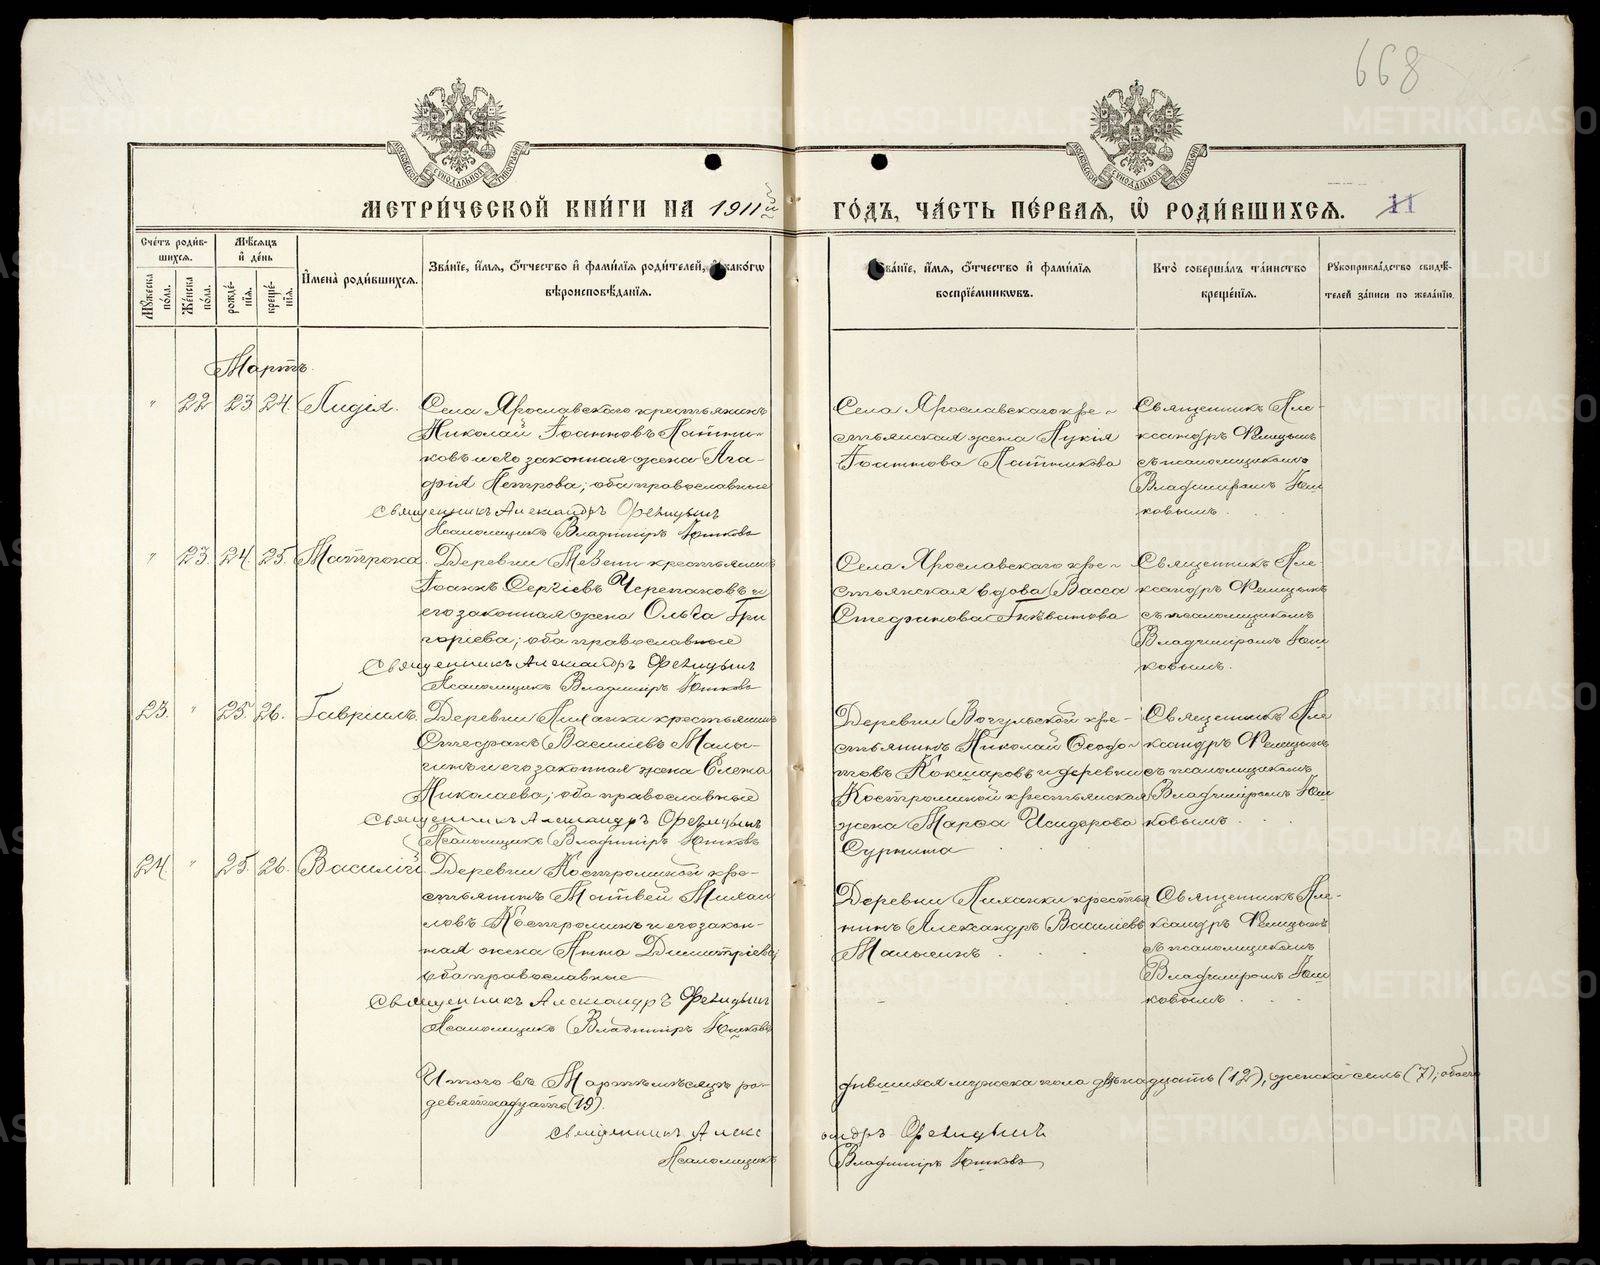 668
МЕТРИ́ЧЕСКОЙ КНИ́ГИ НА 1911й ГО́ДЪ, ЧА́СТЬ ПЕ́РВАЯ, Ѡ РОДИ́ВШИХСЯ. 11
Сче́тъ роди́в-
шихся.
Мѣ́сяцъ
и́ де́нь
Му́жеска
по́ла.
Же́нска
по́ла.
рожде́-
нія.
креще́-
нія.
И́мена̀ роди́вшихся.
Зва́ніе, и́мя, ѻ́тчество и́ фами́лія роди́телей, и́ како́гѡ
вѣроисповѣ́данія.
Зва́ніе, и́мя, ѻ́тчество и́ фами́лія
воспріе́мниковъ.
Кто̀ соверша́лъ та́инство
креще́нія.
Рукоприкла́дство свидѣ́-
телей за́писи по жела́нію.
Мартъ.
" 22 23 24. Лидія.
Села Ярославскаго крестьянинъ
Николай Іоанновъ Латни-
ковъ и его законная жена Ага-
фія Петрова; оба православные
Священникъ Александръ Феницынъ
Псаломщикъ Владиміръ Юшковъ
Села Ярославскаго кре-
стьянская жена Лукія
Іоаннова Латникова
Священникъ Але-
ксандръ Феницынъ
съ псаломщикомъ
Владиміромъ Юш
ковымъ.
" 23. 24. 25. Матрона.
Деревни Мезени крестьянинъ
Іоаннъ Сергіевъ Черепановъ и
его законная жена Ольга Гри
горіева; оба православные
Священникъ Александръ Феницынъ
Псаломщикъ Владиміръ Юшковъ
Села Ярославскаго кре-
стьянская вдова Васса
Стефанова Гнѣванова
Священникъ Але-
ксандръ Феницынъ
съ псаломщикомъ
Владиміромъ Юш
ковымъ.
23. " 25. 26. Гавріилъ.
Деревни Лиханки крестьянинъ
Стефанъ Василіевъ Малы-
гинъ и его законная жена Елена
Николаева; оба православные
Священникъ Александръ Феницынъ
Псаломщикъ Владиміръ Юшковъ
Деревни Вогульской кре-
стьянинъ Николай Ѳеодо-
товъ Кокшаровъ и деревни
Костроминой крестьянская
жена Марѳа Исидорова
Сурнина
Священникъ Але
ксандръ Феницынъ
съ псаломщикомъ
Владиміромъ Юш
ковымъ
24. " 25. 26. Василій
Деревни Костроминой кре-
стьянинъ Матвей Михаи
ловъ Костроминъ и его закон-
ная жена Анна Димитріева;
оба православные
Священникъ Александръ Феницынъ
Псаломщикъ Владиміръ Юшковъ
Деревни Лиханки крестья
нинъ Александръ Василіевъ
Малыгинъ
Священникъ Але-
ксандръ Феницынъ
съ псаломщикомъ
Владиміромъ Юш
ковымъ
Итого въ Мартѣ мѣсяцѣ ро-дившихся мужска пола двѣнадцать (12), женска семь (7); обоего
девятнадцать (19).
Священникъ Александръ Феницынъ
Псаломщикъ Владиміръ Юшковъ